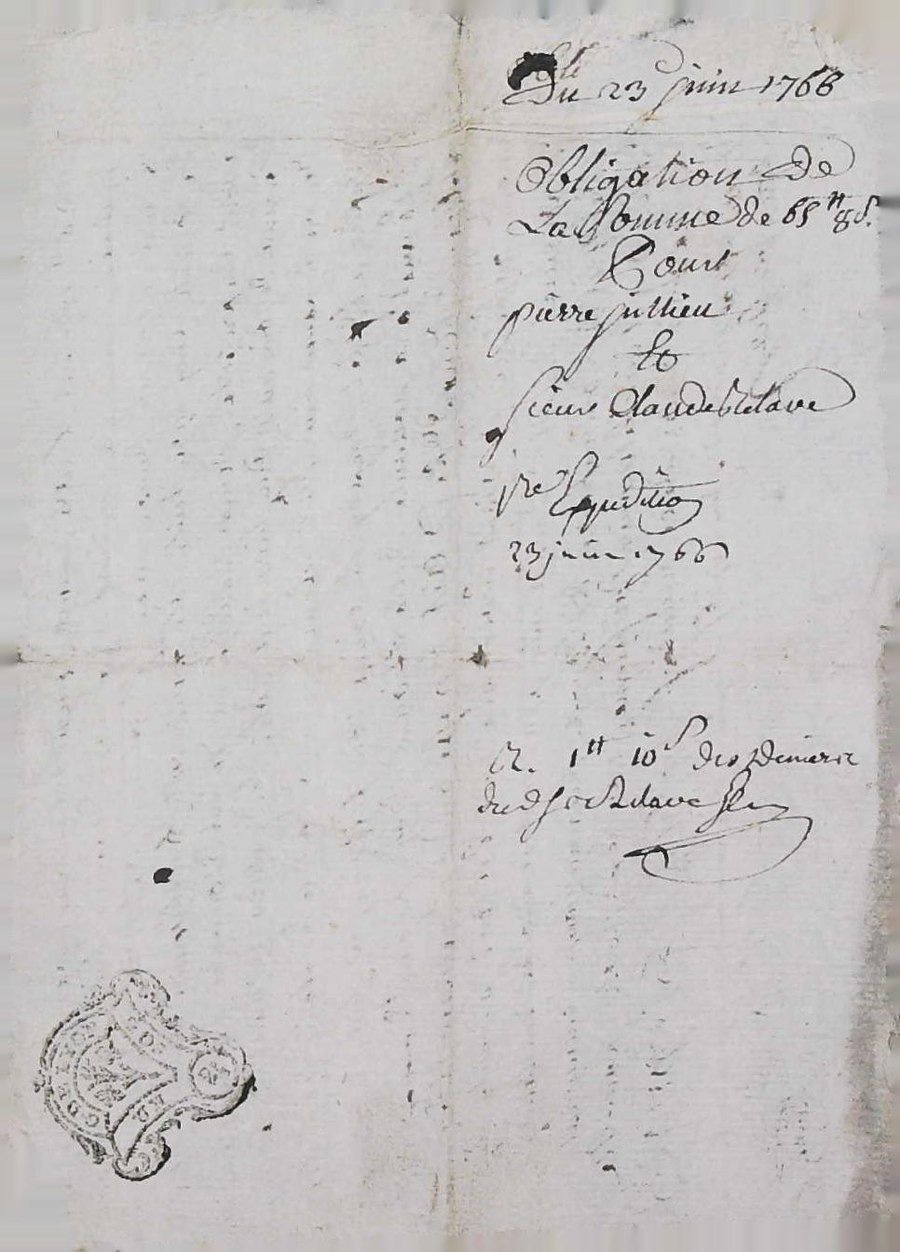 Du 23 juin 1766
Obligation De
La Somme de 65tt 8s.
Pour
pierre jullien
Et
sieur Claude Relave
pre Expedition
23 juin 1766
R. 1tt 10s des Deniers
dud. Sr Relave